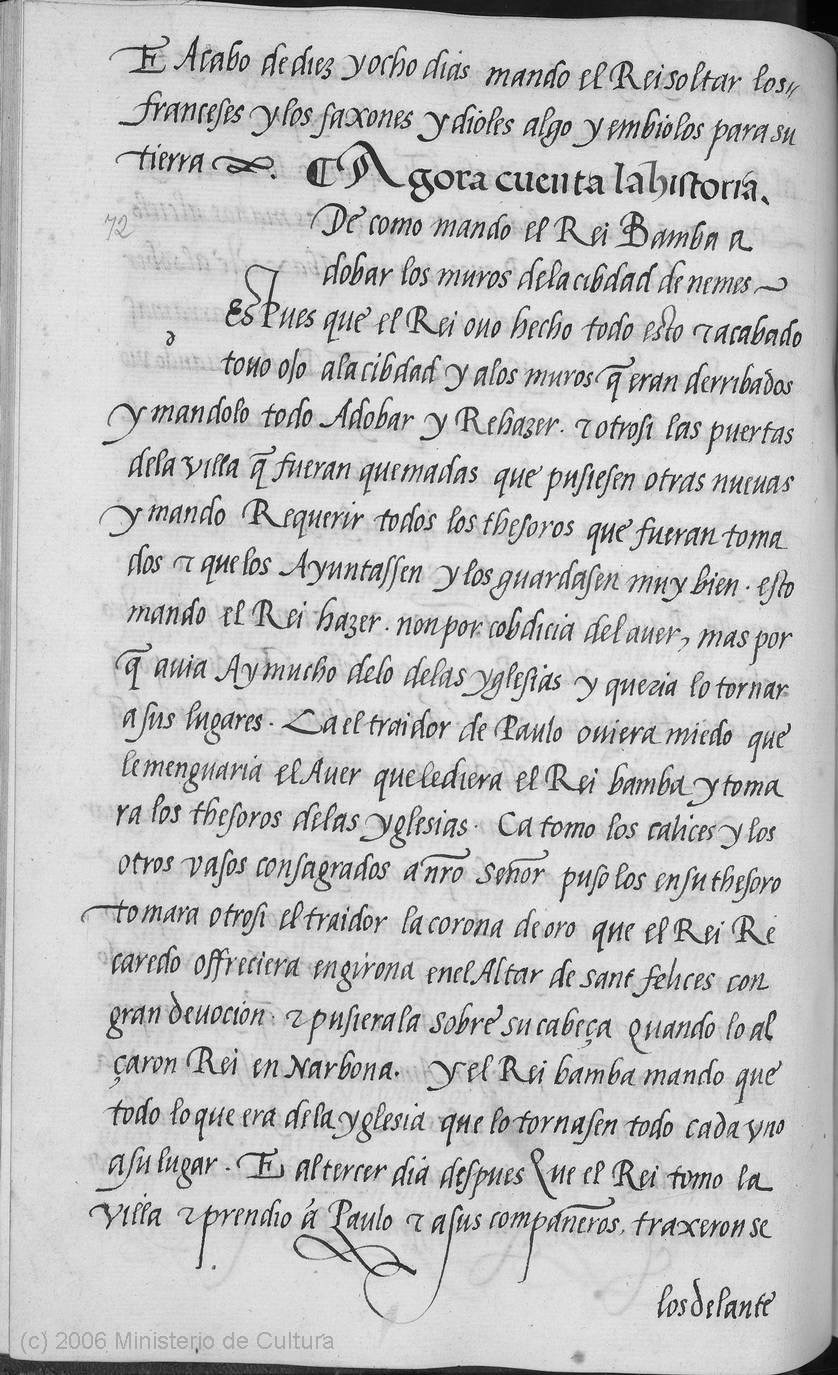 E Acabo de diez y ocho dias mando el Rei soltar los
franceses y los saxones y dioles algo y embiolos para su
tierra. ¶ Agora cuenta la historia.
72
De como mando el Rei Bamba a
dobar los muros dela cibdad de nemes
d Espues que el Rei ouo hecho todo esto ⁊ acabado
touo ojo ala cibdad y alos muros q̃ eran derribados
y mandolo todo Adobar y Rehazer. ⁊ otrosi las puertas
dela villa q̃ fueran quemadas que pusiesen otras nuevas
y mando Requerir todos los thesoros que fueran toma
dos ⁊ que los Ayuntassen y los guardasen muy bien. esto
mando el Rei hazer. non por cobdicia del aver, mas por
q̃ auia Ay mucho delo delas yglesias y queria lo tornar
a sus lugares. Ca el traidor de Paulo oviera miedo que
le menguaria el Aver que le diera el Rei bamba y toma
ra los thesoros delas yglesias. Ca tomo los calices y los
otros vasos consagrados a nr̃o Señor puso los en su thesoro
tomara otrosi el traidor la corona de oro que el Rei Re
caredo offreciera en girona en el Altar de sant felices con
gran devocion. ⁊ pusierala sobre su cabeça quando lo al
çaron Rei en Narbona. y el Rei bamba mando que
todo lo que era dela yglesia que lo tornasen todo cada vno
a su lugar. E al tercer dia despues que el Rei tomo la
villa ⁊ prendio á Paulo ⁊ a sus compañeros, traxeron se
los delante
(c) 2006 Ministerio de Cultura